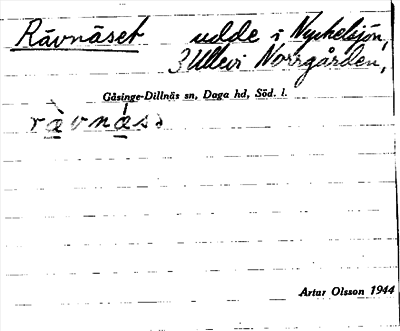 Rävnäset udde i Nyckelsjön,
3 Ullevi Norrgården,
Gåsinge-Dillnäs sn, Daga hd, Söd. l.
Artur Olsson 1944